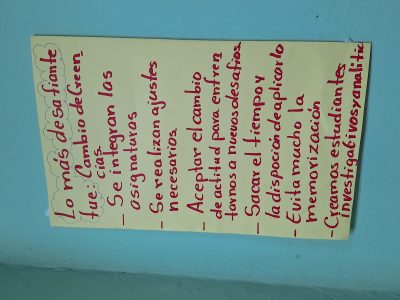 Lo más desafiante
fue: Cambio de Creen-
cias.
- Se integran las
asignaturas
- Se realizan ajustes
necesarios.
- Aceptar el cambio
de actitud para enfren
tarnos a nuevos desafíos
- Sacar el tiempo y
la dispoción de aplicarlo
- Evita mucho la
memorización
- Creamos estudiantes
investigativos y analític